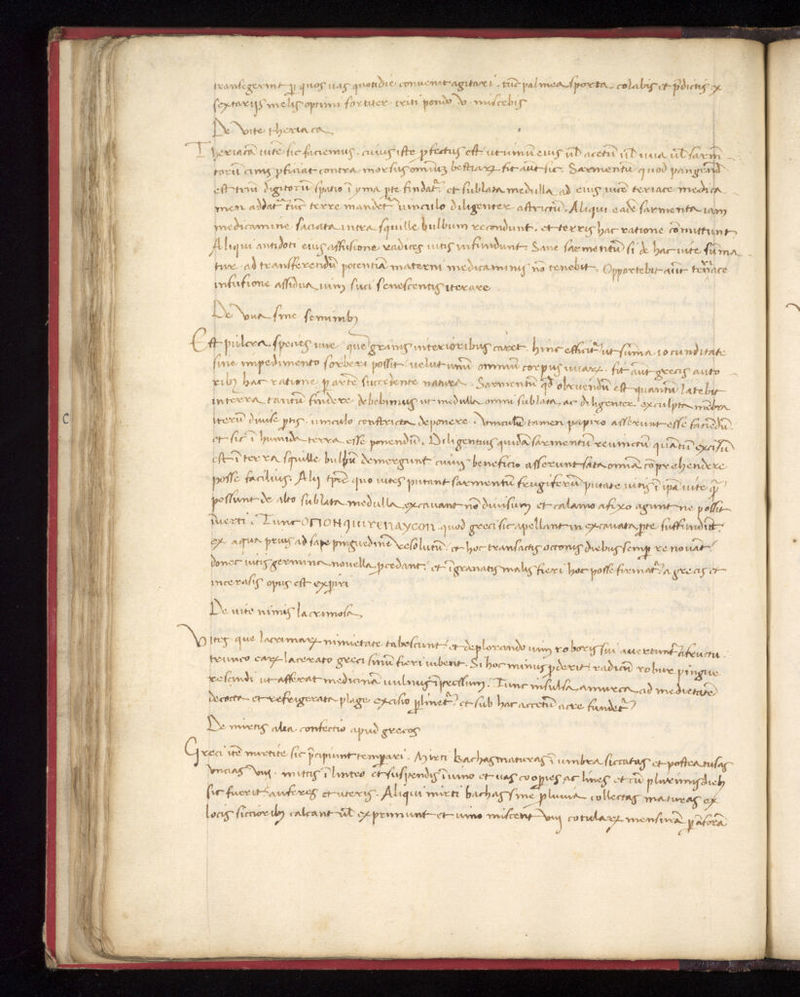 transegerint p quos uas quotidie conueniat agitari. tūc palmea sporta colabis et p̄dictis x
sextariis melis optimi fortiter triti pondo v. miscebis
De Vite theriaca
Theriacā uitē sic faciemus. cuius iste p̄fectus est ut uinū eius ul̄ acetū ul̄ uua ul̄ sarm̄
torū cinis p̄ficiat contra morsus omniū bestiarꝝ. fit aūt sic. Sarmentū quod pangend̄
est triū digitorū spatio ī yma pte findat᷑. et sublata medulla ad eius uicē teriace medica
men addat᷑ tūc terre mandet᷑ uinculo diligenter astrictū. Aliqui eadē sarmenta iam
medicamine saciata intra squille bulbum recondunt. et terris hac ratione cōmittunt
Aliqui antidoti eius affusione radices uitis infundunt. Sane sarmentū si de hac uite sūma
tur ad transferendū potentiā materni medicaminis nō tenebit. Opportebit aūt teriace
infusione assidua uim suci senescentis iterare
De Vua sine seminibꝫ
Est pulcra species uue que granis interioribus caret. hinc efficit᷑ ut sūma iocunditate
sine impedimento sorberi possit uelut unū omniū corpus uuarꝝ. fit aūt grecis aucto
ribꝫ hac ratione p artē succedente natura. Sarmentū qd̄ obruendū est quantū latebit
in terra tantū findere debebimus ut medulla omni sublata ac diligenter exculpta mēbra
iterū diuise ptis uinculo constricta deponere. Vinculū tamen papiro asserunt esse faciēdū
et sic ī humida terra esse ponendū. Diligentius quidā sarmentū reuinctū quātū excisū
est ī terra squille bulbū demergunt cuius beneficio asserunt sata omnia cōprehendere
posse facilius. Alij tpr̄e quo uites putant sarmentū frugiferū putate uitis ī ipa uite qr̄
possunt de alto sublata medulla excauant nō diuisum et calamo afixo agunt ne possit
īuerti. Tunc οπον quirenaycon. quod greci sic apellant in excauata pte suffundūt
ex aqua prius ad sape pinguedinē resolutū. et hoc transactis octonis diebus semp renouat᷑
donec uitis germina nouella pcedant. et ī granatis malis fieri hoc posse firmat᷑ a grecis et
in cerasis opus est expiri
De uite nimis lacrimosa
Vites que lacrimarꝝ nimietate tabescunt et deplorando uim roboris sui auertunt a fructu.
trunco earꝝ lacerato greci sinū fieri iubent. Si hoc minus pderit radicū robur pingue
rescindi ut afferat medicinā uulnus īpressum. Tunc insulsa amurca ad medietatē
decocta et refrigerata plage excisio plinet᷑ et sub hac accetū acre fundet᷑
De mirtis alia confectio apud grecos
Greci itē mirtite sic p̄cipiunt temperari. Mirti bachas maturas ī umbra siccatas et postea tusas
uncias viij. mittis ī linteo et suspendis ī uino et uas coopies ac lines et cū plurimis dieb
sic fuerit auferes et uteris. Aliqui mirti bachas sine pluuia collectas maturas ex
locis siccioribꝫ calcant ul̄ exprimunt et uino miscent viij cotularꝝ mensurā p āforā